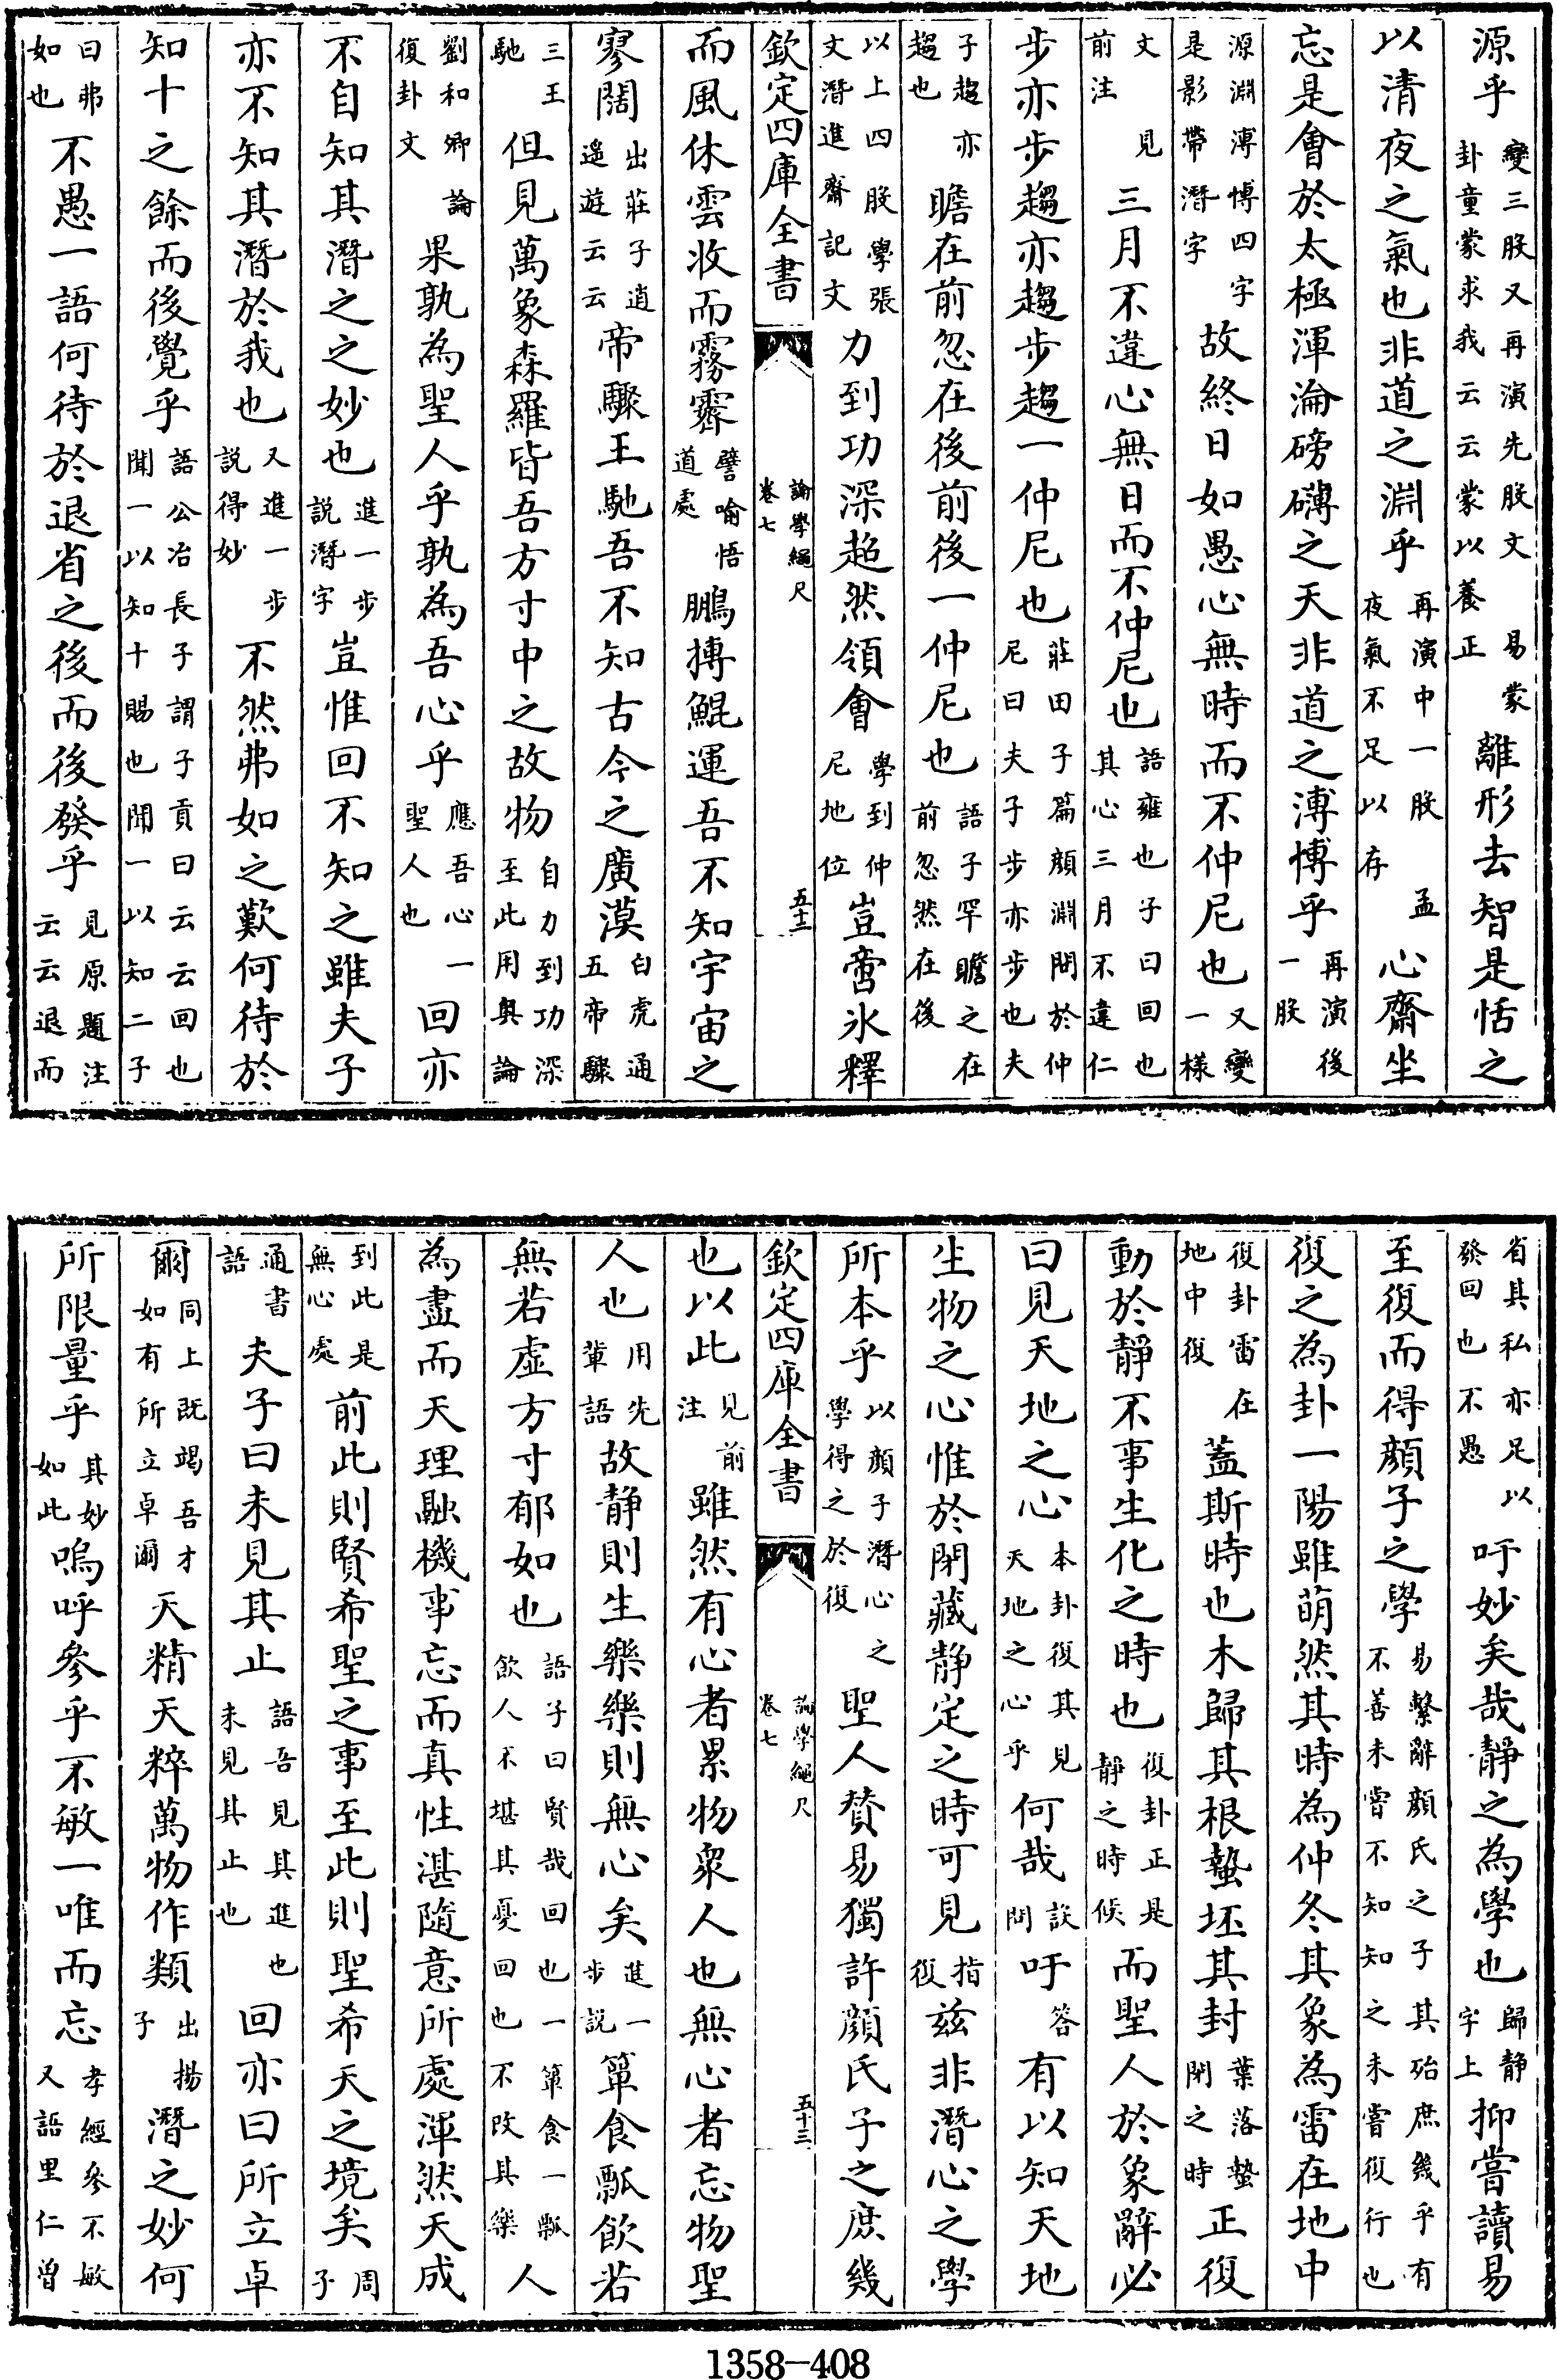 源乎變三股又再演先股文易蒙卦童蒙求我云云蒙以養正離形去智是恬之
以清夜之氣也非道之淵乎再演中一股孟夜氣不足以存心齋坐
忘是會於太極渾淪磅礴之天非道之溥博乎再演後一股
源淵溥博四字是影帶潛字故終日如愚心無時而不仲尼也又變一様
文見前注三月不違心無日而不仲尼也語雍也子曰回也其心三月不違仁
步亦步趨亦趨步趨一仲尼也莊田子篇顔淵問於仲尼曰夫子步亦步也夫
子趨亦趨也瞻在前忽在後前後一仲尼也語子罕瞻之在前忽然在後
以上四股學張文潛進齋記文力到功深超然領會學到仲尼地位豈啻氷釋
欽定四庫全書 論學繩尺卷七 五十二
而風休雲收而霧霽譬喻悟道處鵬摶鯤運吾不知宇宙之
寥闊出莊子逍遥遊云云帝驟王馳吾不知古今之廣漠白虎通五帝驟
三王馳但見萬象森羅皆吾方寸中之故物自力到功深至此用輿論
劉和卿論復卦文果孰為聖人乎孰為吾心乎應吾心一聖人也回亦
不自知其潛之之妙也進一步説潛字豈惟回不知之雖夫子
亦不知其潛於我也又進一步説得妙不然弗如之歎何待於
知十之餘而後覺乎語公冶長子謂子貢曰云云回也聞一以知十賜也聞一以知二子
曰弗如也不愚一語何待於退省之後而後發乎見原題注云云退而
省其私亦足以發回也不愚吁妙矣哉靜之為學也歸静字上抑嘗讀易
至復而得顔子之學易繫辭顔氏之子其殆庶幾乎有不善未嘗不知知之未嘗復行也
復之為卦一陽雖萌然其時為仲冬其象為雷在地中
復卦雷在地中復蓋斯時也木歸其根蟄坯其封葉落蟄閉之時正復
動於靜不事生化之時也復卦正是靜之時候而聖人於象辭必
曰見天地之心本卦復其見天地之心乎何哉設問吁答有以知天地
生物之心惟於閉藏静定之時可見指復兹非潛心之學
所本乎以顔子潛心之學得之於復聖人贊易獨許顔氏子之庶幾
欽定四庫全書 論學繩尺卷七 五十三
也以此見前注雖然有心者累物衆人也無心者忘物聖
人也用先軰語故静則生樂樂則無心矣進一步説簞食瓢飲若
無若虚方寸郁如也語子曰賢哉回也一簞食一瓢飲人不堪其憂回也不改其樂人
為盡而天理融機事忘而真性湛隨意所處渾然天成
到此是無心處前此則賢希聖之事至此則聖希天之境矣周子
通書語夫子曰未見其止語吾見其進也未見其止也回亦曰所立卓
爾同上既竭吾才如有所立卓爾天精天粹萬物作類出揚子潛之妙何
所限量乎其妙如此嗚呼參乎不敏一唯而忘孝經參不敏又語里仁曾
1358-408